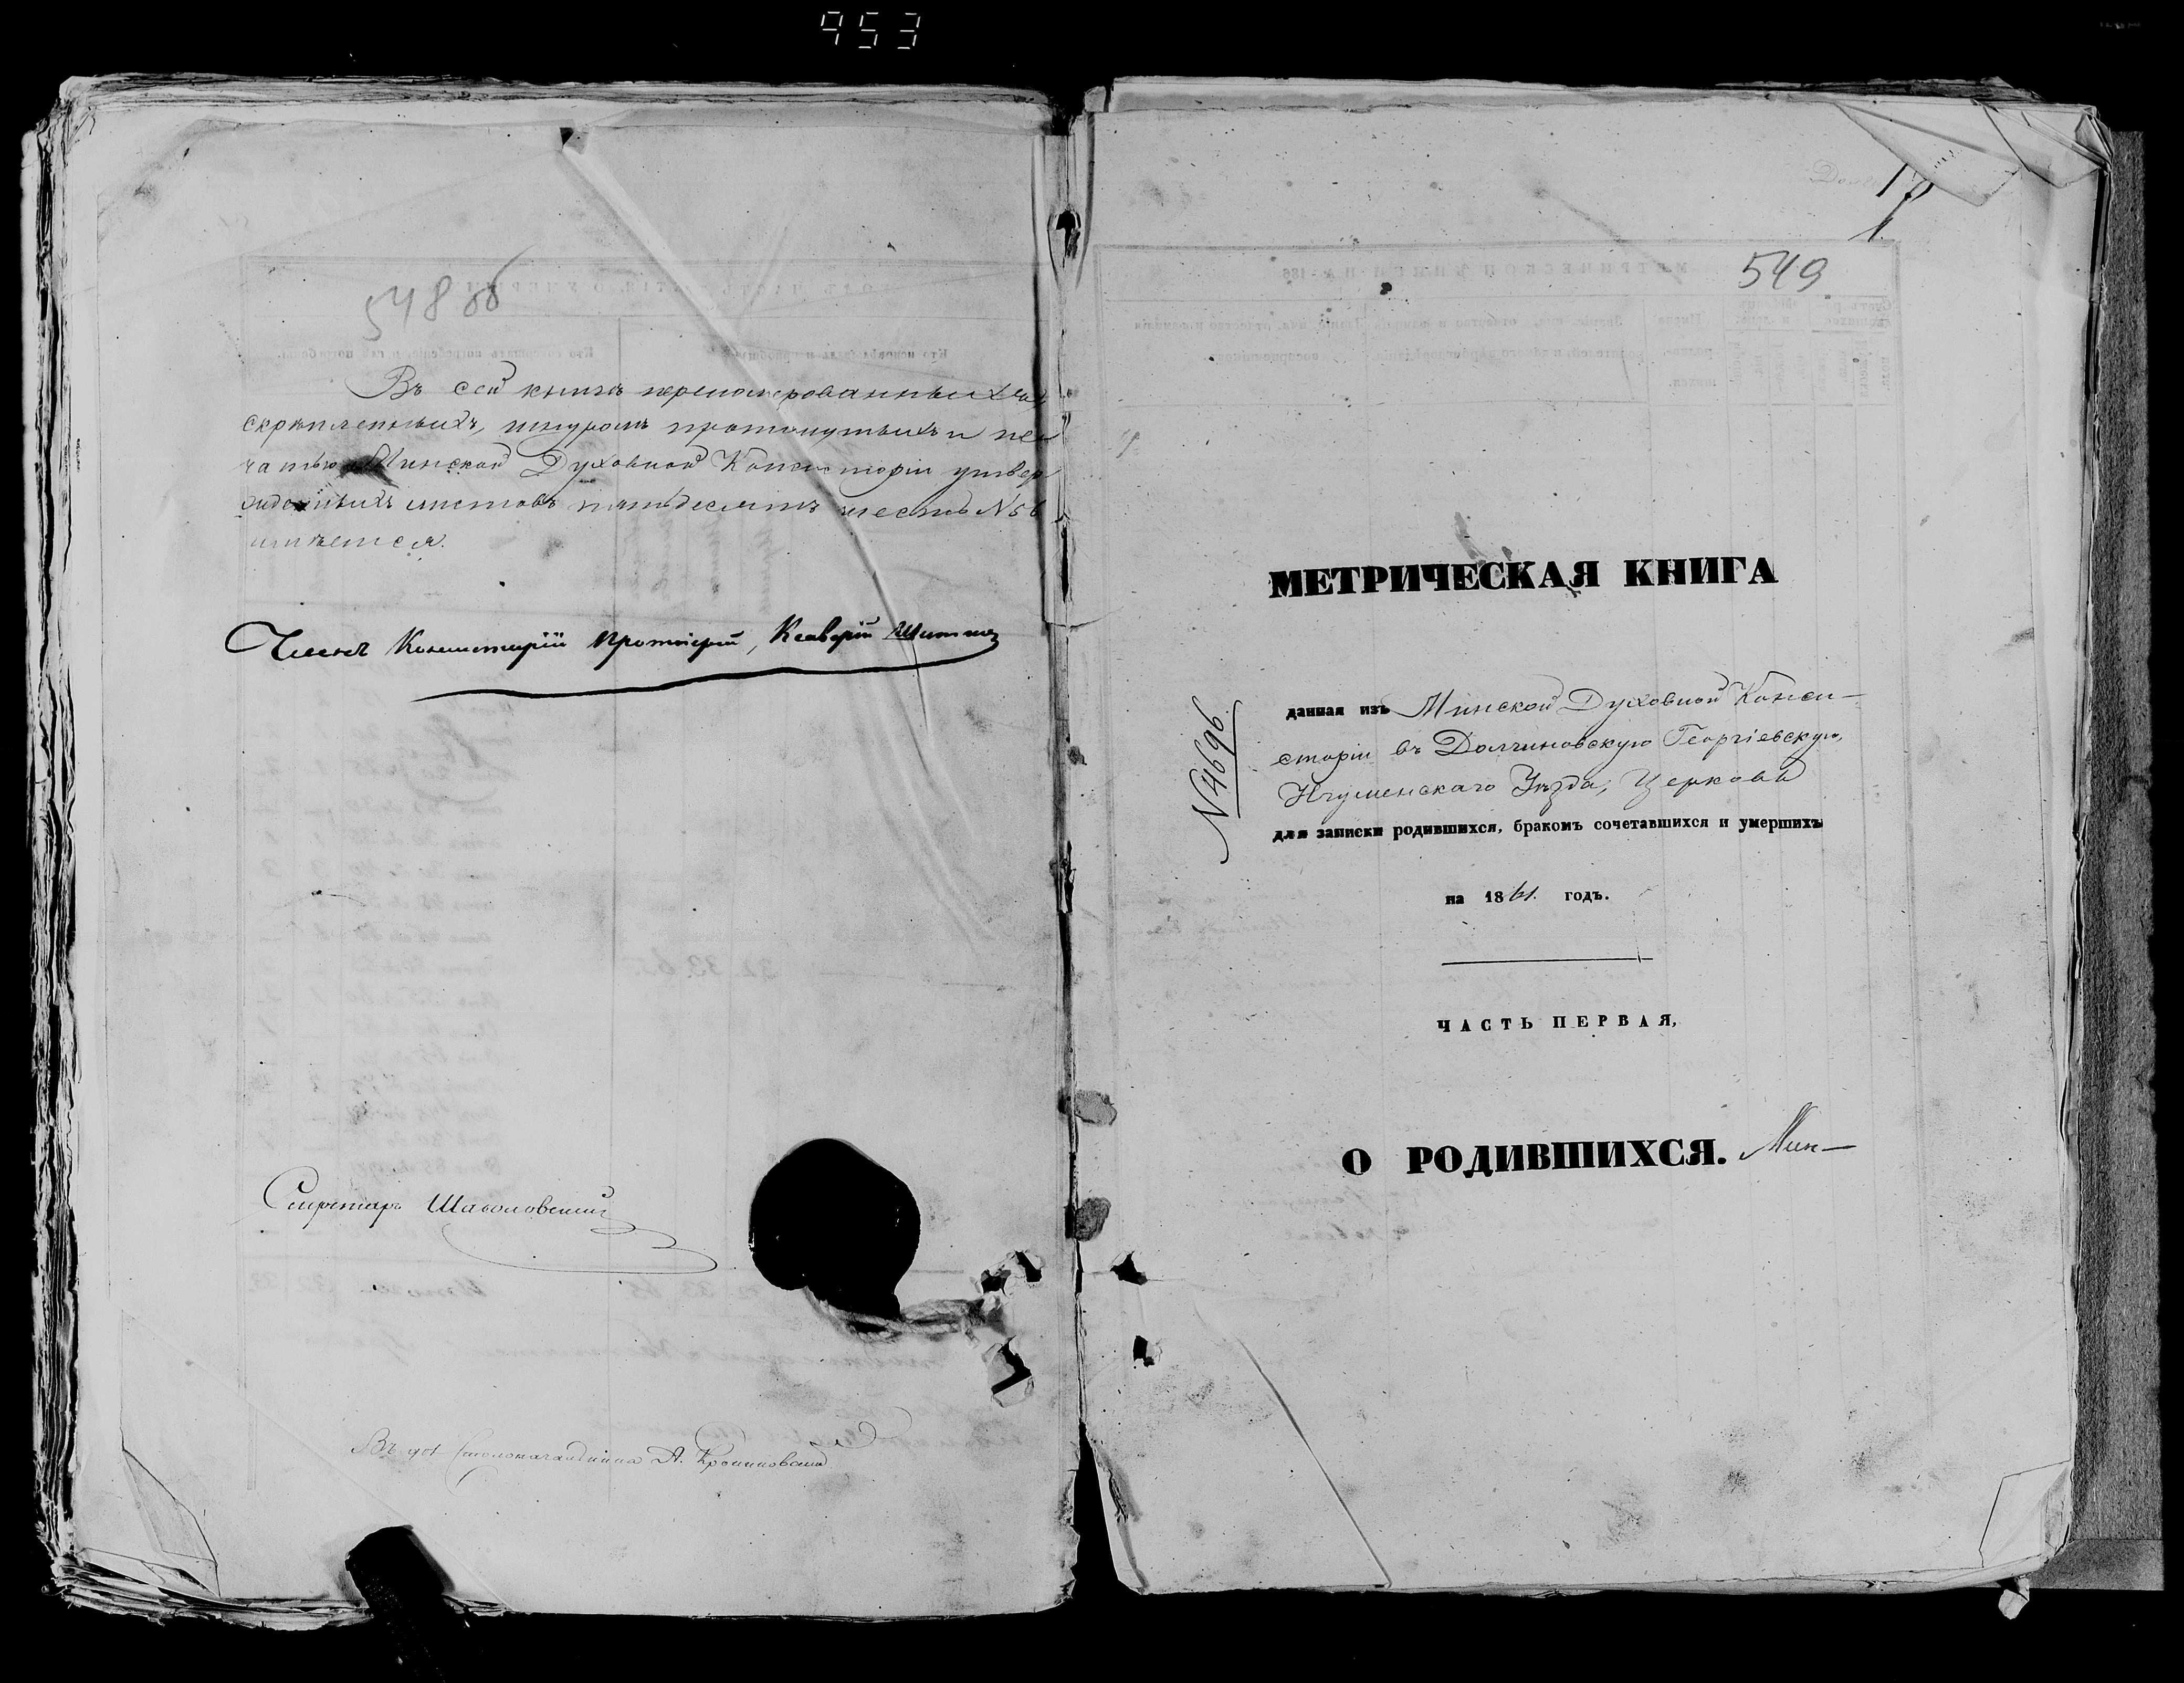 953
548 об
Въ сей книгѣ перенумерованныхъ,
скрѣпленныхъ, шнуромъ протянутыхъ и пе
чатью Минской Духовной Консисторіи утвер
жденныхъ листовъ пятьдесятъ шесть N 56
имѣется.
Членъ Консисторіи Протоіерей, Ксаверій
Секретарь
Въ Столоначальника А.
549
МЕТРИЧЕСКАЯ КНИГА
N 4696
данная изъ Минской Духовной Конси-
сторіи въ Долчиновскую Георгіевскую,
Игуменскаго Уѣзда, Церковь
для записки родившихся, бракомъ сочетавшихся и умершихъ
на 1861. годъ.
ЧАСТЬ ПЕРВАЯ,
О РОДИВШИХСЯ. Мин-